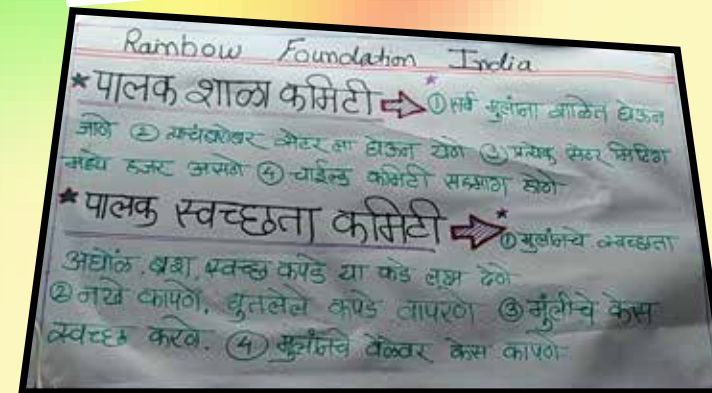 Rainbow Foundation India
★ पालक शाळा कमिटी ⇨ ① सर्व मुलांना शाळेत घेऊन
जाणे ② त्याचबरोबर सेंटर ला घेऊन येणे ③ प्रत्येक सेंटर मिटिंग
मध्ये हजर असणे ④ चाईल्ड कमिटी सहभाग होणे
★ पालक स्वच्छता कमिटी ⇨ ① मुलांनचे स्वच्छता
अघोंळ, ब्रश, स्वच्छ कपडे या कडे लक्ष देणे
② नखे कापणे, धुतलेले कपडे वापरणे ③ मुंलीचे केस
स्वच्छ करणे. ④ मुलांनचे वेळेवर केस कापणे.